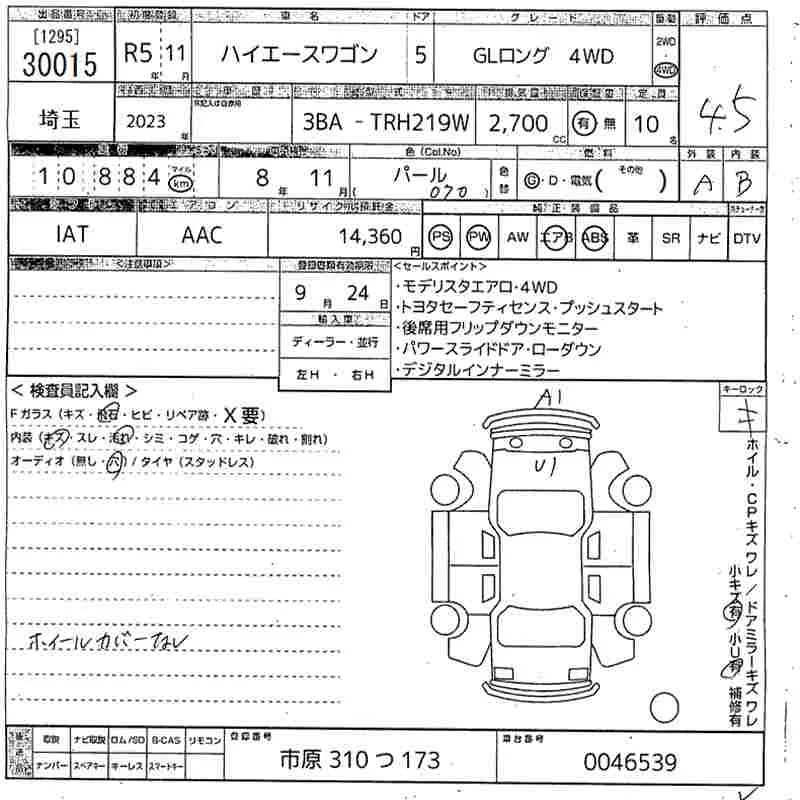 出品番号 初度登録 車名 ドア グレード 駆動 評価点
[1295]
30015 R5年 11月 ハイエースワゴン 5 GLロング 4WD 2WD・4WD
4.5
埼玉 2023年 3BA - TRH219W 2,700cc 有 無 定員 10名
色(Col.No) 燃料 外装 内装
10884 マイル km 8年 11月 パール 070 色替 G・D・電気( その他 ) A B
エアコン リサイクル預託金 純正装備品
IAT AAC 14,360円 PS PW AW エアB ABS 革 SR ナビ DTV
<注意事項> 登録書類有効期限 <セールスポイント>
9月 24日
輸入車
ディーラー・並行
左H ・ 右H
・モデリスタエアロ・4WD
・トヨタセーフティセンス・プッシュスタート
・後席用フリップダウンモニター
・パワースライドドア・ローダウン
・デジタルインナーミラー
< 検査員記入欄 > キーロック
キ
Fガラス(キズ・飛石・ヒビ・リペア跡・X要)
内装(キズ・スレ・汚れ・シミ・コゲ・穴・キレ・破れ・割れ)
オーディオ(無し・穴)/タイヤ(スタッドレス)
A1
U1
ホイール・CPキズ ワレ / ドアミラーキズ ワレ
小キズ有 小U有 補修有
ホイールカバーなし
取説 ナビ取説 ロム/SD B-CAS リモコン 登録番号 車台番号
ナンバー スペアキー キーレス スマートキー 市原 310 つ 173 0046539